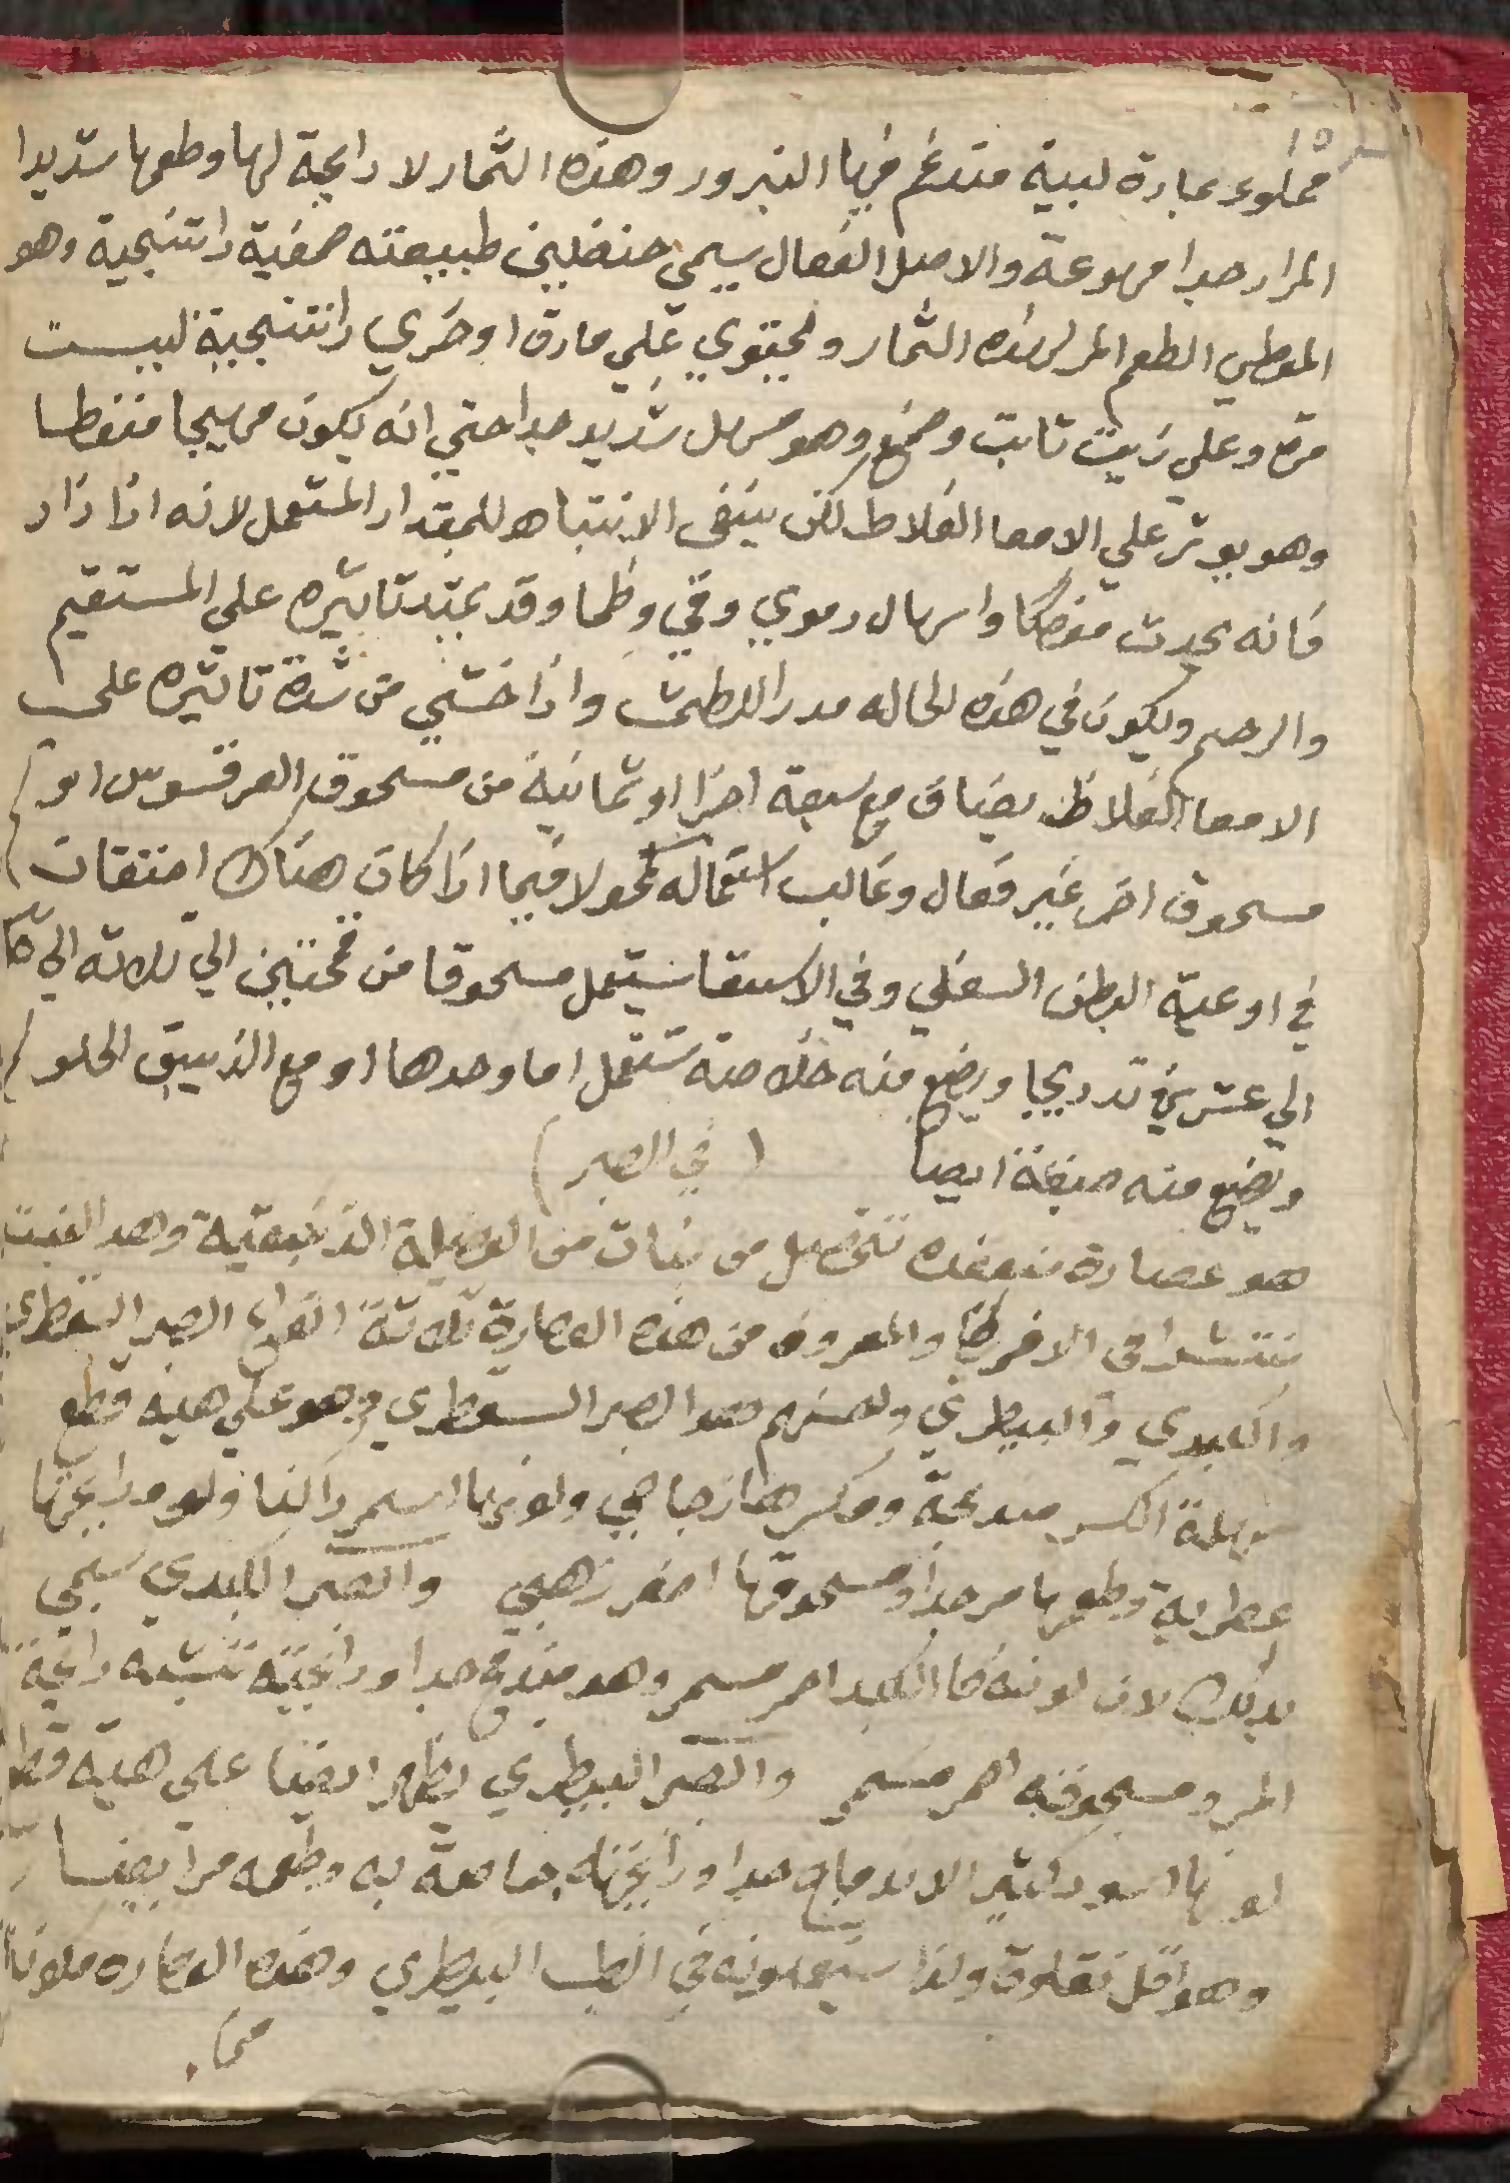 مملوء عبارة لبية متدغم فيها البزور وهذه الثمار لا رايحة لها وطعمها شديدا
المرار جدا مهوعة والاصل الفعال يسمي حنظلين طبيعته صمغية راتنجية وهو
المعطي الطعم المر لهذه الثمار ويحتوي علي مادة اوخري راتنجية ليست
مرة وعلي زيت ثابت وصمغ وهو مسهل شديد جدا حتي انه يكون مهيجا منفطا
وهو يوثر علي الامعا الغلاظ لكن ينبغي الانتباه للمقدار المستعمل لانه اذا زاد
فانه يحدث مغصا واسهال دموي وقي وظما وقد يمتد تاثيره علي المستقيم
والرحم ويكون في هذه الحاله مدرا للطمث واذا خشي من شدة تاثيره علي
الامعا الغلاظ يضاف مع سبعة اجزا او ثمانية من مسحوق العرقسوس او
مسحوق اخر غير فعال وغالب استعماله محمولا فيما اذا كان هناك احتقان
في اوعية البطن السفلي وفي الاستسقا يستعمل مسحوقا من قمحتين الي ثلاثه الي
الي عشرين تدريجا ويصنع منه خلاصة تستعمل اما وحدها او مع الزيبق الحلو
ويصنع منه صبغة ايضا ( في الصبر )
هو عصارة منعقده تتحصل من نبات من الفصيلة الزنبقية وهذا النبت
منتشرا في الافريقا والمعروف من هذه العصارة ثلاثة انواع الصبر السقطري
والكبدي والبيطري واحسنهم هو الصبر السقطري وهو علي هيئه قطع
سهلة الكسر مندمجة ومكسرها زجاجي ولونها اسمر داكنا ورايحتها
عطرية وطعمها مر جدا ومسحوقها اصفر ذهبي والصبر الكبدي سمي
بذلك لان لونه كالكبد احمر مسمر وهو مندمج جدا ورايحته تشبه رايحة
المر ومسحوقه احمر مسمر والصبر البيطري يظهر ايضا علي هيئه قطع
لونها اسود كثير الاندماج جدا ورايحته خاصة به وطعمه مر ايضا
وهو اقل نقاوة ولذا يستعملونه في الطب البيطري وهذه العصاره مكونة
من